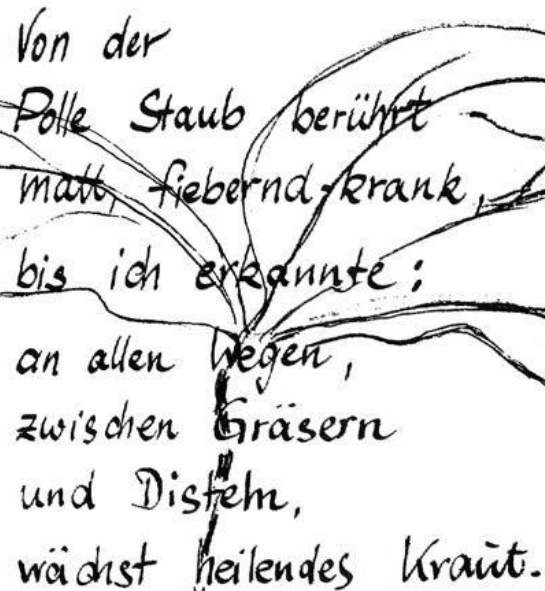 Von der
Polle Staub berührt
matt, fiebernd-krank,
bis ich erkannte:
an allen Wegen,
zwischen Gräsern
und Disteln,
wächst heilendes Kraut.